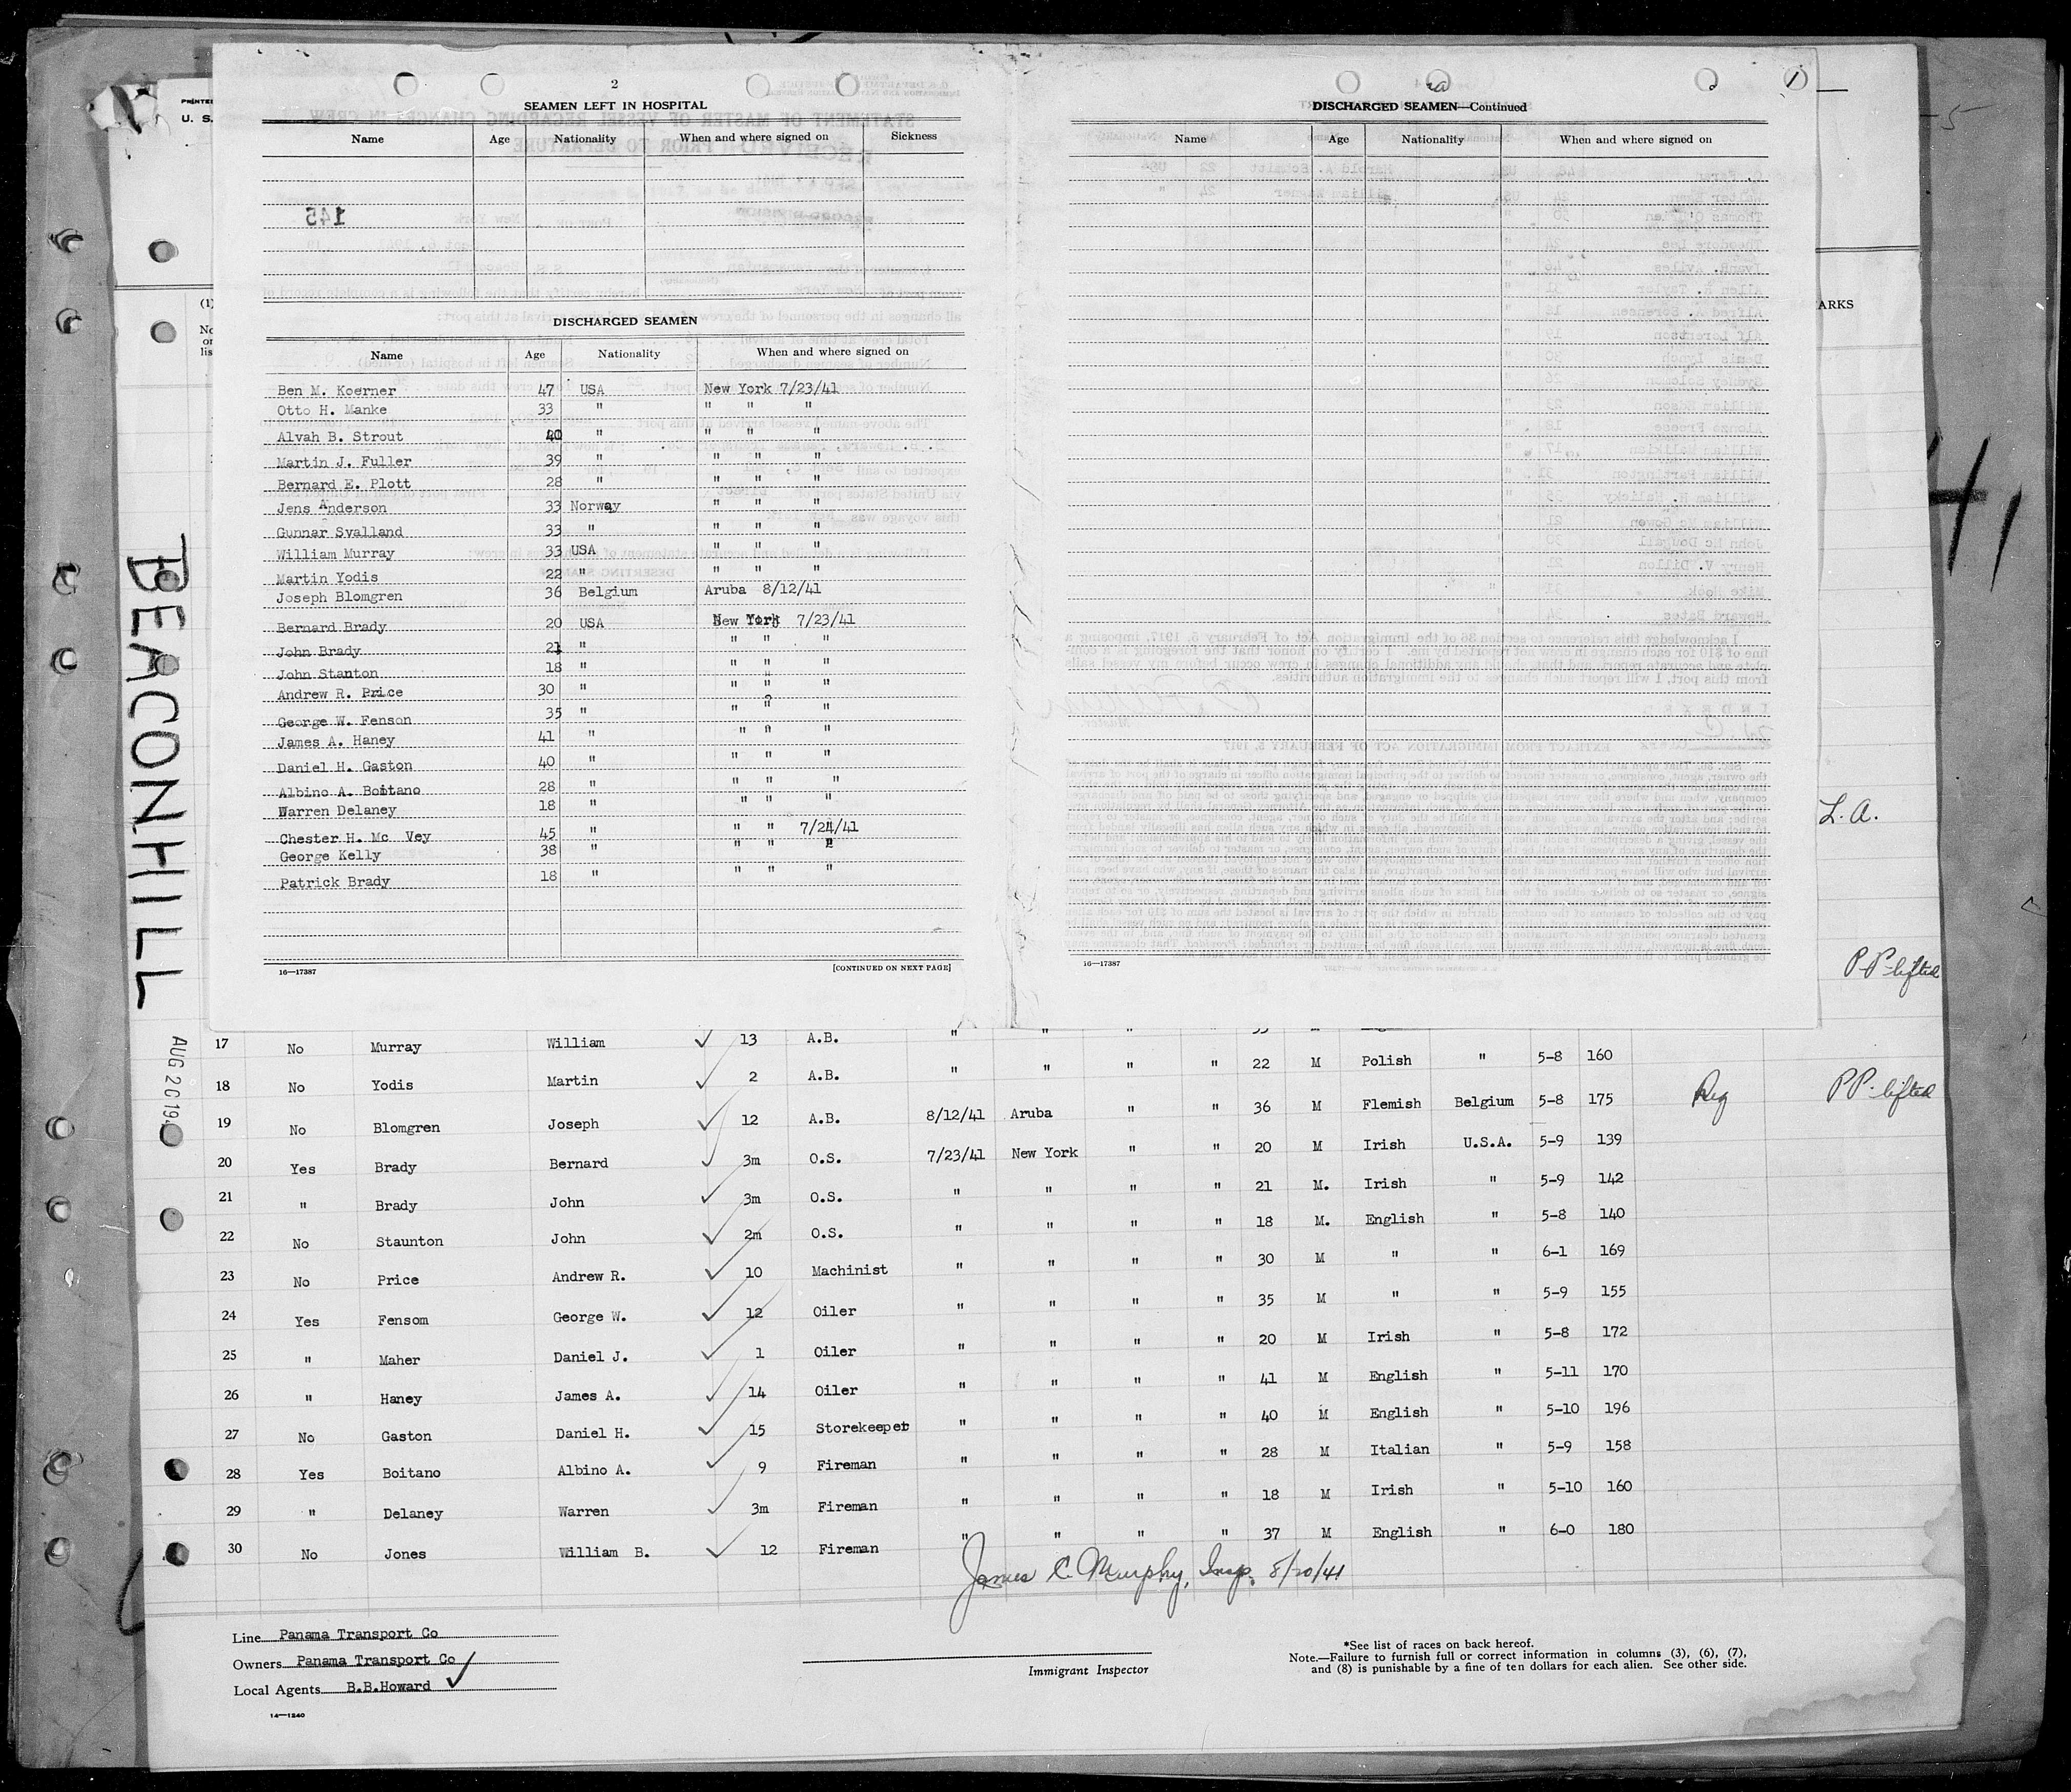 PRINTED
U. S.
(1)
BEACONHILL
AUG 20 19
2
SEAMEN LEFT IN HOSPITAL
Name Age Nationality When and where signed on Sickness
145
DISCHARGED SEAMEN
Name Age Nationality When and where signed on
Ben M. Koerner 47 USA New York 7/23/41
Otto H. Manke 33 " " " "
Alvah B. Strout 40 " " " "
Martin J. Fuller 39 " " " "
Bernard E. Plott 28 " " " "
Jens Anderson 33 Norway " " "
Gunnar Svalland 33 " " " "
William Murray 33 USA " " "
Martin Yodis 22 " " " "
Joseph Blomgren 36 Belgium Aruba 8/12/41
Bernard Brady 20 USA New York 7/23/41
John Brady 21 " " " "
John Stanton 18 " " " "
Andrew R. Price 30 " " " "
George W. Fenson 35 " " " "
James A. Haney 41 " " " "
Daniel H. Gaston 40 " " " "
Albino A. Boitano 28 " " " "
Warren Delaney 18 " " " "
Chester H. Mc Vey 45 " " " 7/24/41
George Kelly 38 " " " "
Patrick Brady 18 " " " "
16—17387 [CONTINUED ON NEXT PAGE]
2a
DISCHARGED SEAMEN—Continued
Name Age Nationality When and where signed on
16—17387
ARKS
41
L.A.
PP-lifted
17 No Murray William 13 A.B. " " " 33 M
18 No Yodis Martin 2 A.B. " " " " 22 M Polish " 5-8 160
19 No Blomgren Joseph 12 A.B. 8/12/41 Aruba " " 36 M Flemish Belgium 5-8 175 Reg PP-lifted
20 Yes Brady Bernard 3m O.S. 7/23/41 New York " " 20 M Irish U.S.A. 5-9 139
21 " Brady John 3m O.S. " " " " 21 M. Irish " 5-9 142
22 No Staunton John 2m O.S. " " " " 18 M. English " 5-8 140
23 No Price Andrew R. 10 Machinist " " " " 30 M " " 6-1 169
24 Yes Fensom George W. 12 Oiler " " " " 35 M " " 5-9 155
25 " Maher Daniel J. 1 Oiler " " " " 20 M Irish " 5-8 172
26 " Haney James A. 14 Oiler " " " " 41 M English " 5-11 170
27 No Gaston Daniel H. 15 Storekeeper " " " " 40 M English " 5-10 196
28 Yes Boitano Albino A. 9 Fireman " " " " 28 M Italian " 5-9 158
29 " Delaney Warren 3m Fireman " " " " 18 M Irish " 5-10 160
30 No Jones William B. 12 Fireman " " " " 37 M English " 6-0 180
James C. Murphy, Insp. 8/20/41
Line Panama Transport Co
Owners Panama Transport Co
Local Agents B.B.Howard
14—1240
Immigrant Inspector
*See list of races on back hereof.
Note.—Failure to furnish full or correct information in columns (3), (6), (7),
and (8) is punishable by a fine of ten dollars for each alien. See other side.